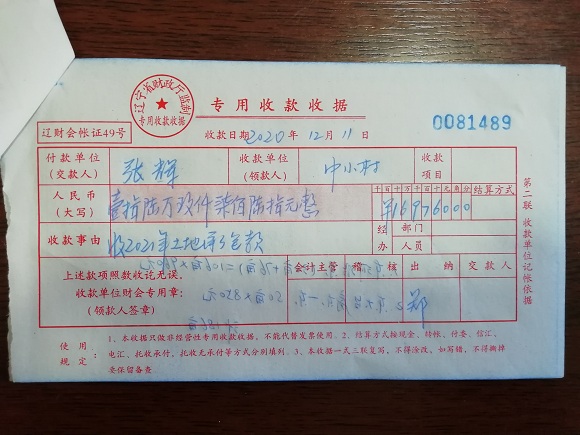 辽宁省财政厅监制
专用收款收据
专用收款收据
辽财会帐证49号
收款日期2020年12月11日
0081489
付款单位(交款人) 张辉 收款单位(领款人) 中小村 收款项目
人民币(大写) 壹拾陆万玖仟柒佰陆拾元整 千百十万千百十元角分 结算方式
¥16976000
收款事由 收2021年土地承包款 经办 部门 人员
上述款项照数收讫无误。 会计主管 稽核 出纳 交款人
收款单位财会专用章:
(领款人签章) 郑
第二联 收款单位记帐依据
使用规定: 1、本收据只做非经营性专用收款收据,不能代替发票使用。2、结算方式按现金、转帐、付委、信汇、
电汇、托收承付、托收无承付等方式分别填列。3、本收据一式三联复写,不得涂改,如写错,不得撕掉
要保留备查